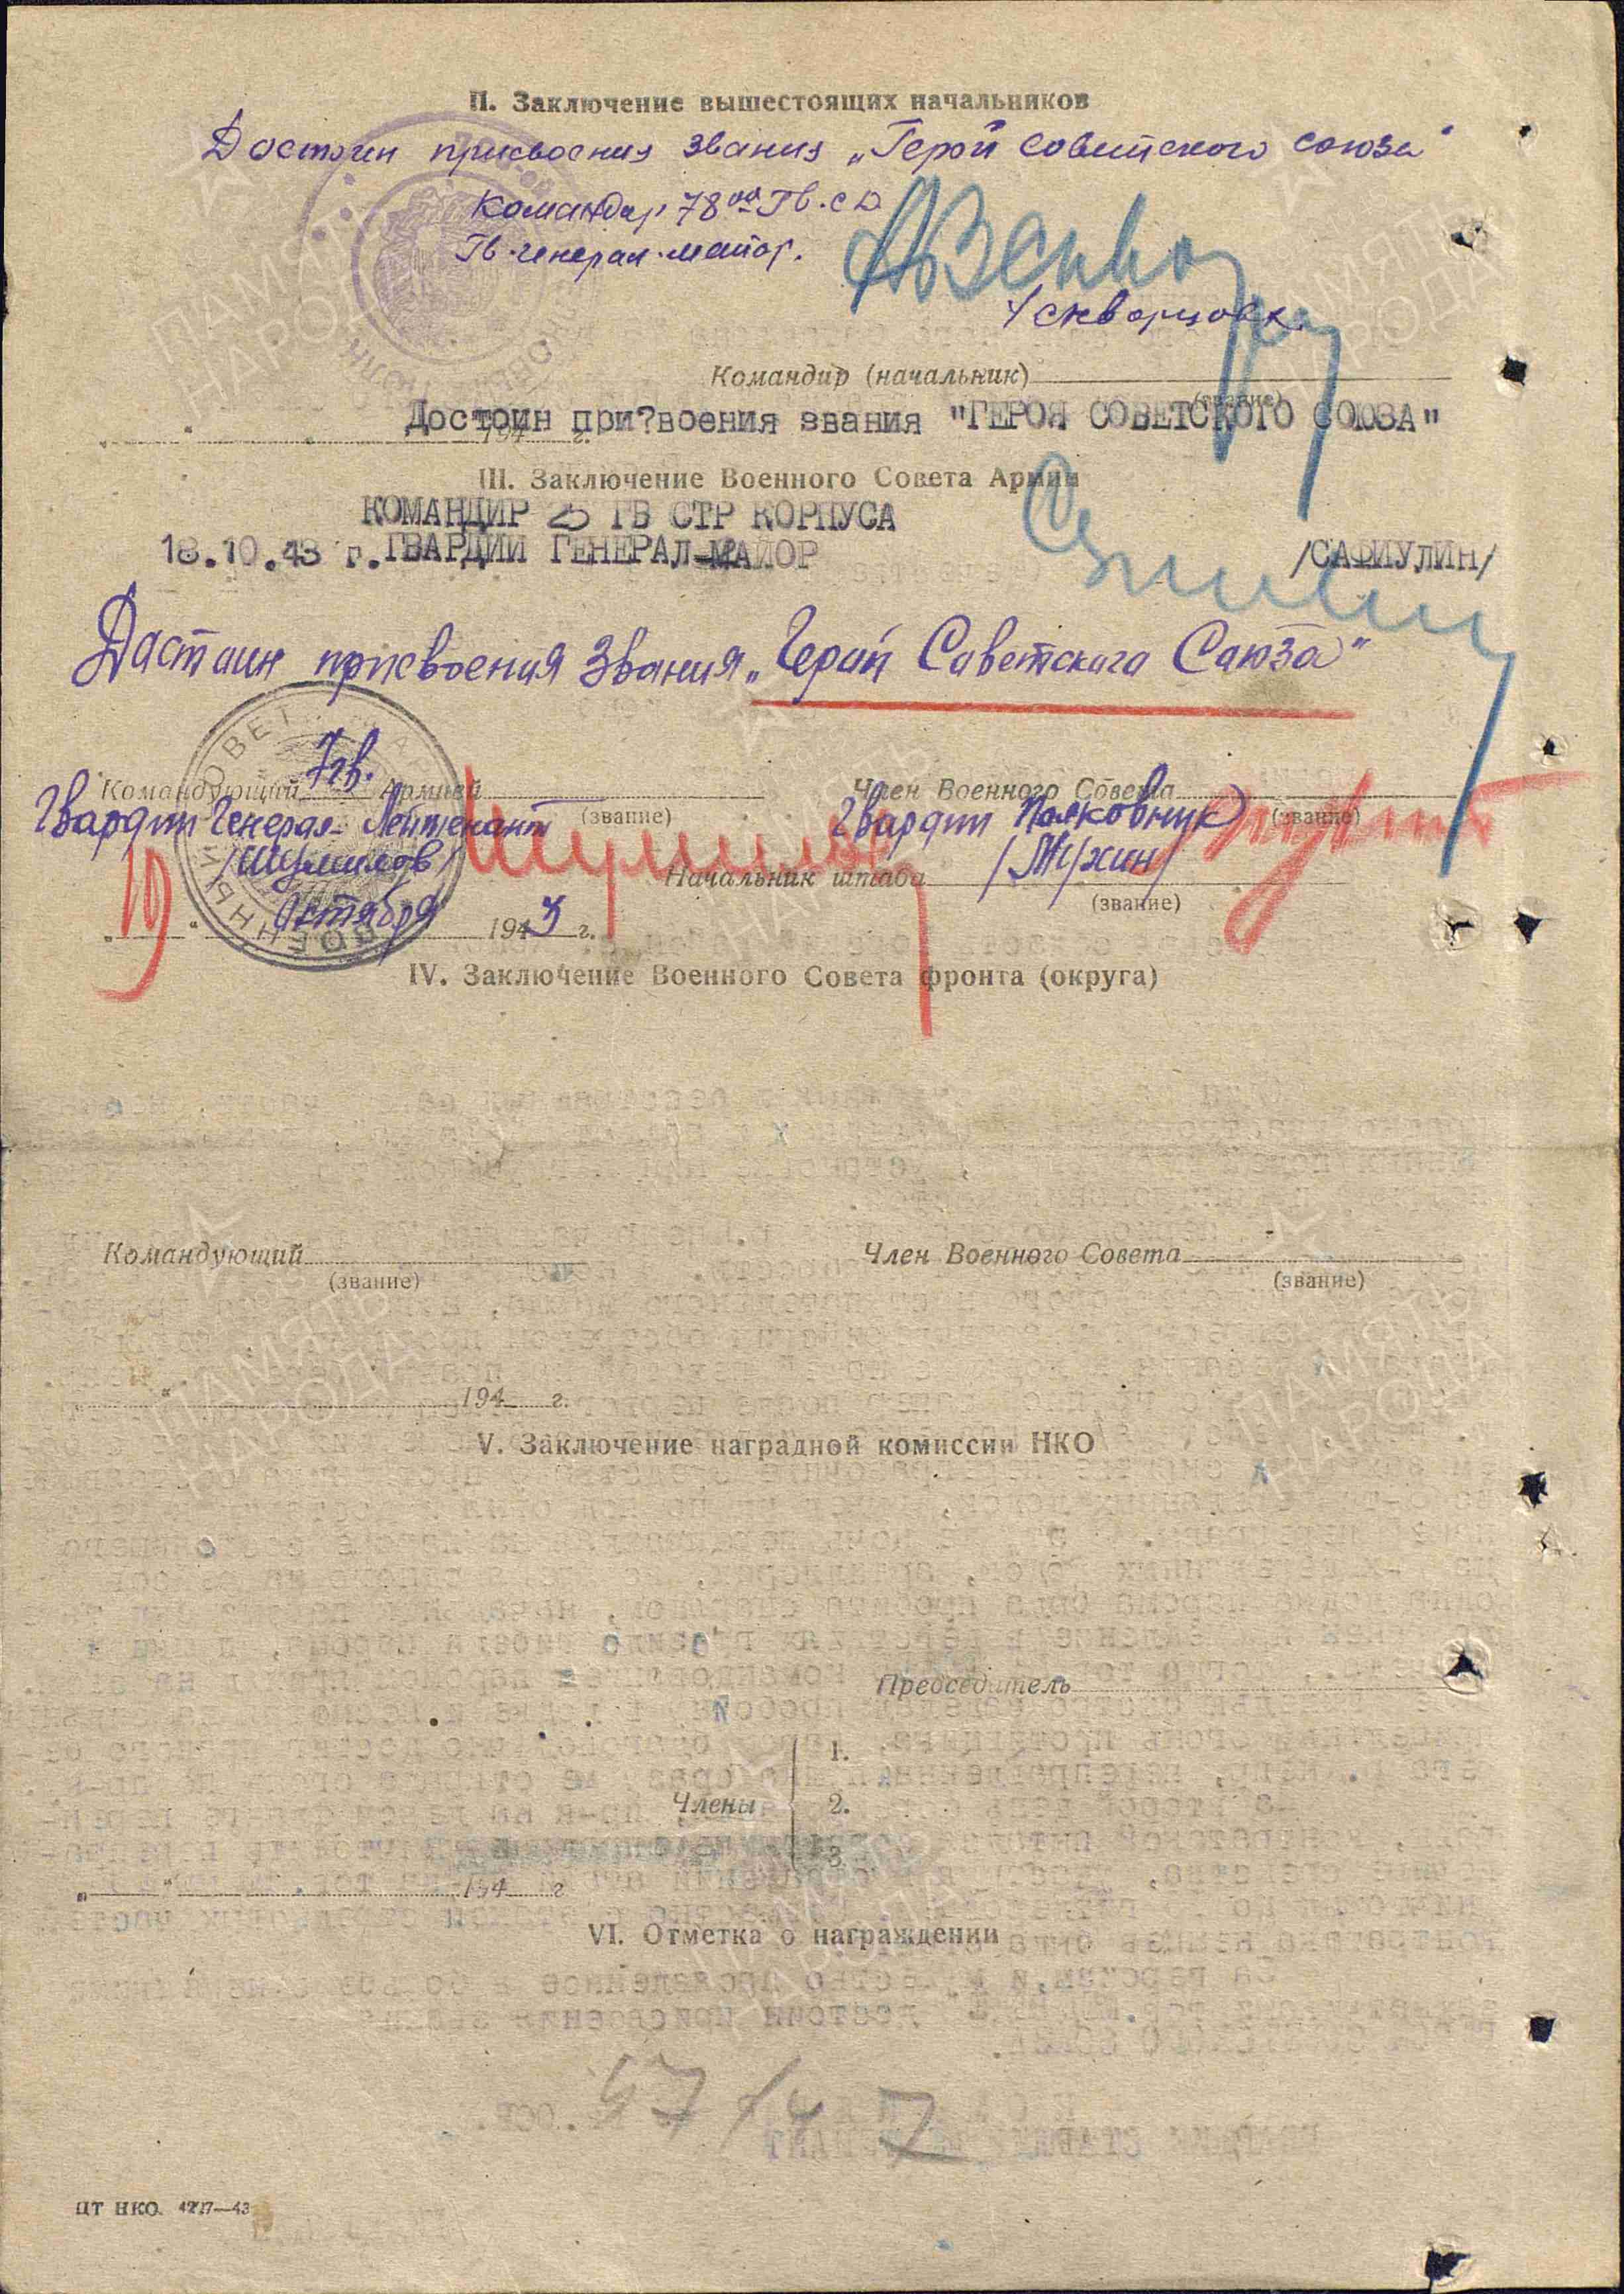 II. Заключение вышестоящих начальников
Достоин присвоения звания „Герой Советского Союза"
Командир 78ой Гв. с д
Гв. генерал-майор.
/Скворцов/.
Командир (начальник)
(звание)
Достоин при?воения звания "ГЕРОЯ СОВЕТСКОГО СОЮЗА"
" " 194 г.
III. Заключение Военного Совета Армии
КОМАНДИР 25 ГВ СТР КОРПУСА
18.10.43 г. ГВАРДИИ ГЕНЕРАЛ-МАЙОР /САФИУЛИН/
Достоин присвоения Звания „Герой Советского Союза"
Командующий 7 гв. Армией Член Военного Совета
Гвардии Генерал-Лейтенант (звание) Гвардии Полковник (звание)
/Шумилов/ Шумилов Начальник штаба /Мухин/
(звание)
19 Октября 1943 г.
IV. Заключение Военного Совета фронта (округа)
Командующий Член Военного Совета
(звание) (звание)
" " 194 г.
V. Заключение наградной комиссии НКО
Председатель
1.
Члены 2.
3.
" " 194 г
VI. Отметка о награждении
ЦТ НКО. 4217—43
ПАМЯТЬ НАРОДА